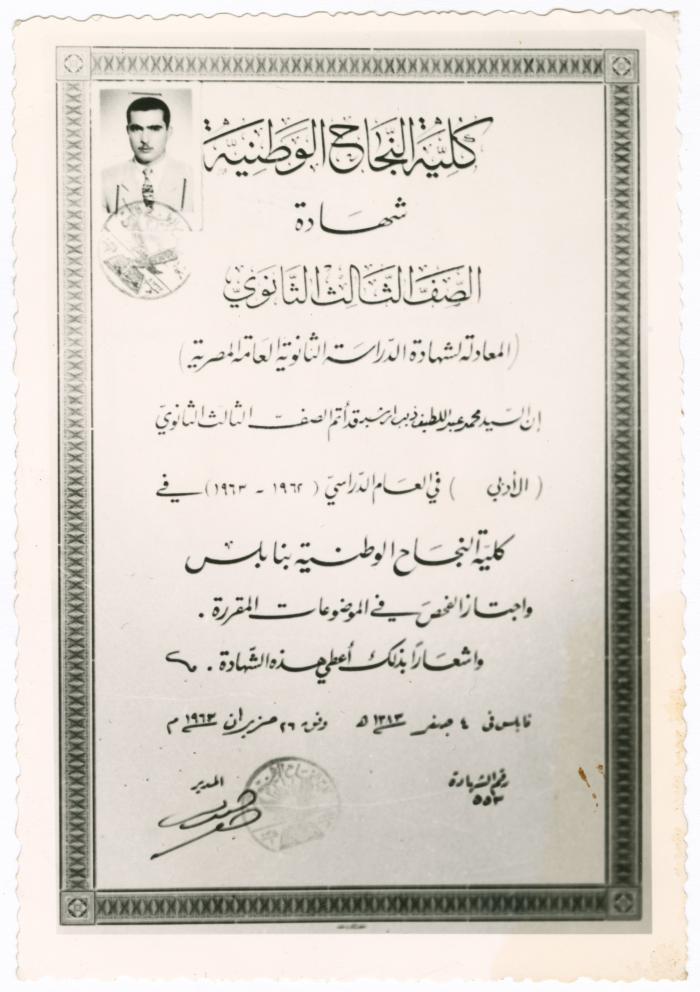 كلية النجاح الوطنية
شهادة
الصف الثالث الثانوي
(المعادلة لشهادة الدراسة الثانوية العامة المصرية)
إن السيد محمد عبد اللطيف ذيب قد أتم الصف الثالث الثانوي
(الأدبي) في العام الدراسي (١٩٦٢ - ١٩٦٣) في
كلية النجاح الوطنية بنابلس
واجتاز الفحص في الموضوعات المقررة.
واشعاراً بذلك أعطي هذه الشهادة.
نابلس في ٤ صفر ١٣٨٣ هـ وفق ٢٦ حزيران ١٩٦٣ م
رقم الشهادة
٥٥٣
المدير